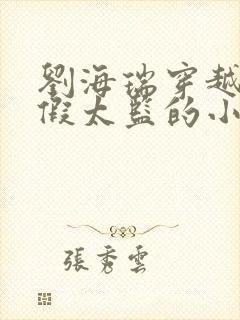 劉海瑞穿越
假太監的小
張秀雲